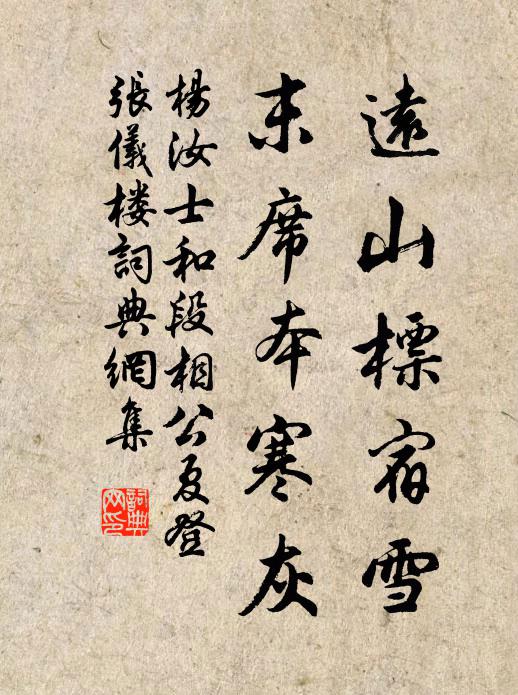 遠山標宿雪
末席本寒灰
楊汝士和段相公夏登
張儀樓詞典網集
詞典
网印